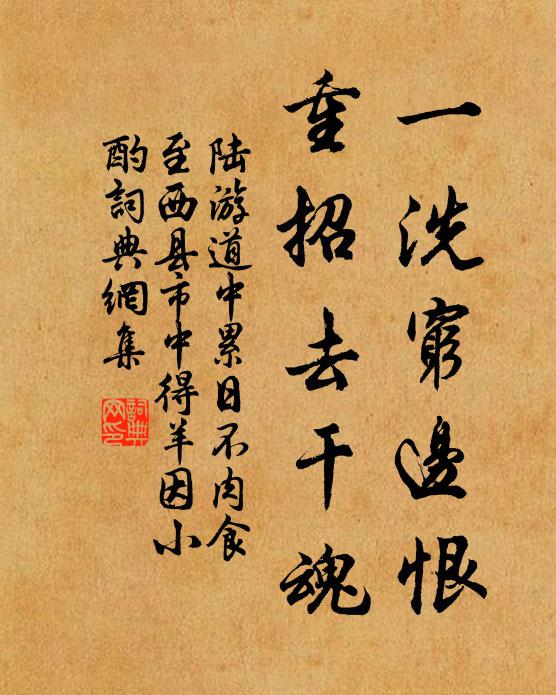 一洗窮邊恨
重招去干魂
陆游道中累日不肉食
至西县市中得羊因小
酌詞典網集
詞典
网印